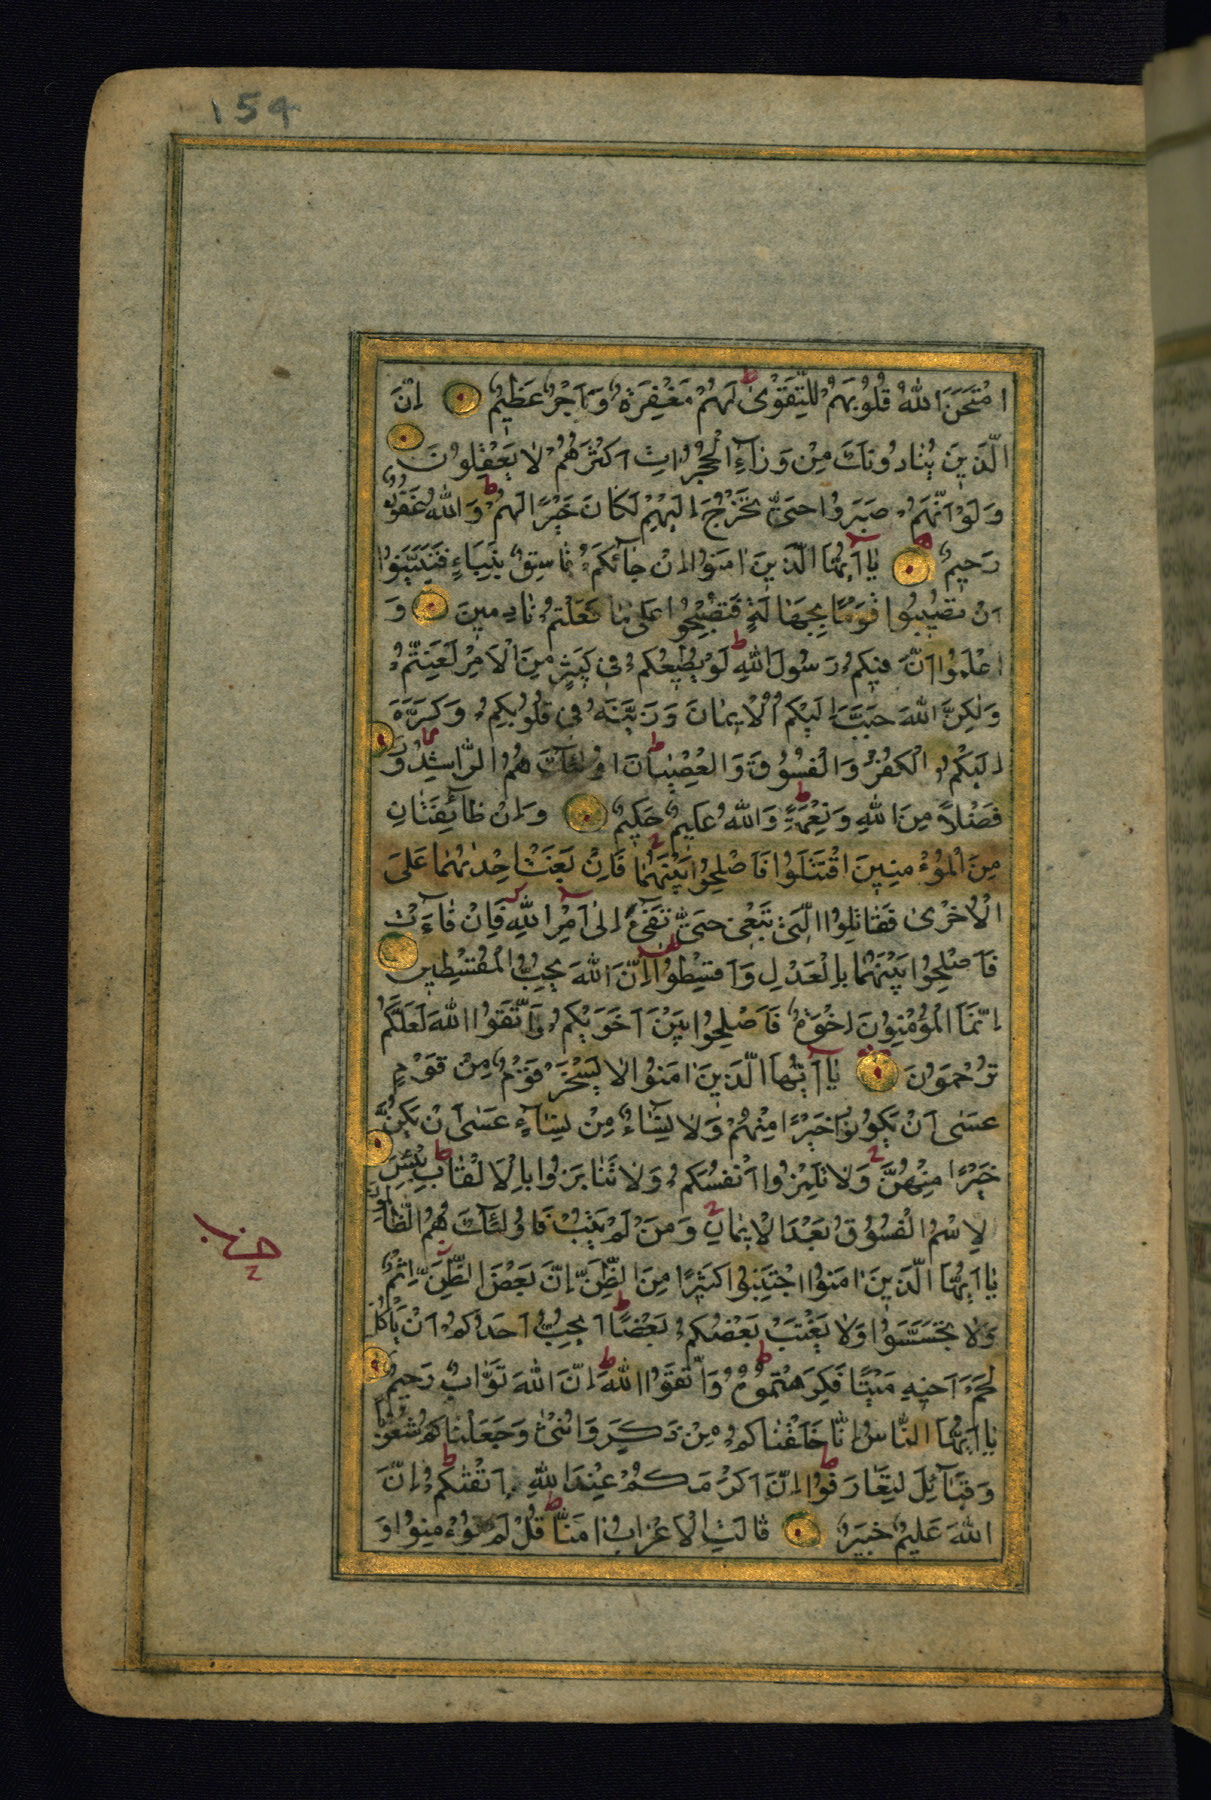 154
امْتَحَنَ اللهُ قُلُوبَهُمْ لِلتَّقْوٰى لَهُمْ مَغْفِرَةٌ وَاَجْرٌ عَظِيمٌ اِنَّ
الَّذِينَ يُنَادُونَكَ مِنْ وَرَآءِ الْحُجُرَاتِ اَكْثَرُهُمْ لَا يَعْقِلُونَ
وَلَوْ اَنَّهُمْ صَبَرُوا حَتّٰى تَخْرُجَ اِلَيْهِمْ لَكَانَ خَيْرًا لَهُمْ وَاللهُ غَفُورٌ
رَحِيمٌ يَا اَيُّهَا الَّذِينَ اٰمَنُوا اِنْ جَآءَكُمْ فَاسِقٌ بِنَبَاءٍ فَتَبَيَّنُوا
اَنْ تُصِيبُوا قَوْمًا بِجَهَالَةٍ فَتُصْبِحُوا عَلٰى مَا فَعَلْتُمْ نَادِمِينَ وَ
اعْلَمُوا اَنَّ فِيكُمْ رَسُولَ اللهِ لَوْ يُطِيعُكُمْ فِي كَثِيرٍ مِنَ الْاَمْرِ لَعَنِتُّمْ
وَلٰكِنَّ اللهَ حَبَّبَ اِلَيْكُمُ الْاِيمَانَ وَزَيَّنَهُ فِي قُلُوبِكُمْ وَكَرَّهَ
اِلَيْكُمُ الْكُفْرَ وَالْفُسُوقَ وَالْعِصْيَانَ اُولٰئِكَ هُمُ الرَّاشِدُونَ
فَضْلًا مِنَ اللهِ وَنِعْمَةً وَاللهُ عَلِيمٌ حَكِيمٌ وَاِنْ طَآئِفَتَانِ
مِنَ الْمُؤْمِنِينَ اقْتَتَلُوا فَاَصْلِحُوا بَيْنَهُمَا فَاِنْ بَغَتْ اِحْدٰىهُمَا عَلَى
الْاُخْرٰى فَقَاتِلُوا الَّتِي تَبْغِي حَتّٰى تَفِيءَ اِلٰى اَمْرِ اللهِ فَاِنْ فَآءَتْ
فَاَصْلِحُوا بَيْنَهُمَا بِالْعَدْلِ وَاَقْسِطُوا اِنَّ اللهَ يُحِبُّ الْمُقْسِطِينَ
اِنَّمَا الْمُؤْمِنُونَ اِخْوَةٌ فَاَصْلِحُوا بَيْنَ اَخَوَيْكُمْ وَاتَّقُوا اللهَ لَعَلَّكُمْ
تُرْحَمُونَ يَا اَيُّهَا الَّذِينَ اٰمَنُوا لَا يَسْخَرْ قَوْمٌ مِنْ قَوْمٍ
عَسٰى اَنْ يَكُونُوا خَيْرًا مِنْهُمْ وَلَا نِسَآءٌ مِنْ نِسَآءٍ عَسٰى اَنْ يَكُنَّ
خَيْرًا مِنْهُنَّ وَلَا تَلْمِزُوا اَنْفُسَكُمْ وَلَا تَنَابَزُوا بِالْاَلْقَابِ بِئْسَ
الِاسْمُ الْفُسُوقُ بَعْدَ الْاِيمَانِ وَمَنْ لَمْ يَتُبْ فَاُولٰئِكَ هُمُ الظَّالِمُونَ
يَا اَيُّهَا الَّذِينَ اٰمَنُوا اجْتَنِبُوا كَثِيرًا مِنَ الظَّنِّ اِنَّ بَعْضَ الظَّنِّ اِثْمٌ
وَلَا تَجَسَّسُوا وَلَا يَغْتَبْ بَعْضُكُمْ بَعْضًا اَيُحِبُّ اَحَدُكُمْ اَنْ يَاْكُلَ
لَحْمَ اَخِيهِ مَيْتًا فَكَرِهْتُمُوهُ وَاتَّقُوا اللهَ اِنَّ اللهَ تَوَّابٌ رَحِيمٌ
يَا اَيُّهَا النَّاسُ اِنَّا خَلَقْنَاكُمْ مِنْ ذَكَرٍ وَاُنْثٰى وَجَعَلْنَاكُمْ شُعُوبًا
وَقَبَآئِلَ لِتَعَارَفُوا اِنَّ اَكْرَمَكُمْ عِنْدَ اللهِ اَتْقٰىكُمْ اِنَّ
اللهَ عَلِيمٌ خَبِيرٌ قَالَتِ الْاَعْرَابُ اٰمَنَّا قُلْ لَمْ تُؤْمِنُوا وَ
حزب